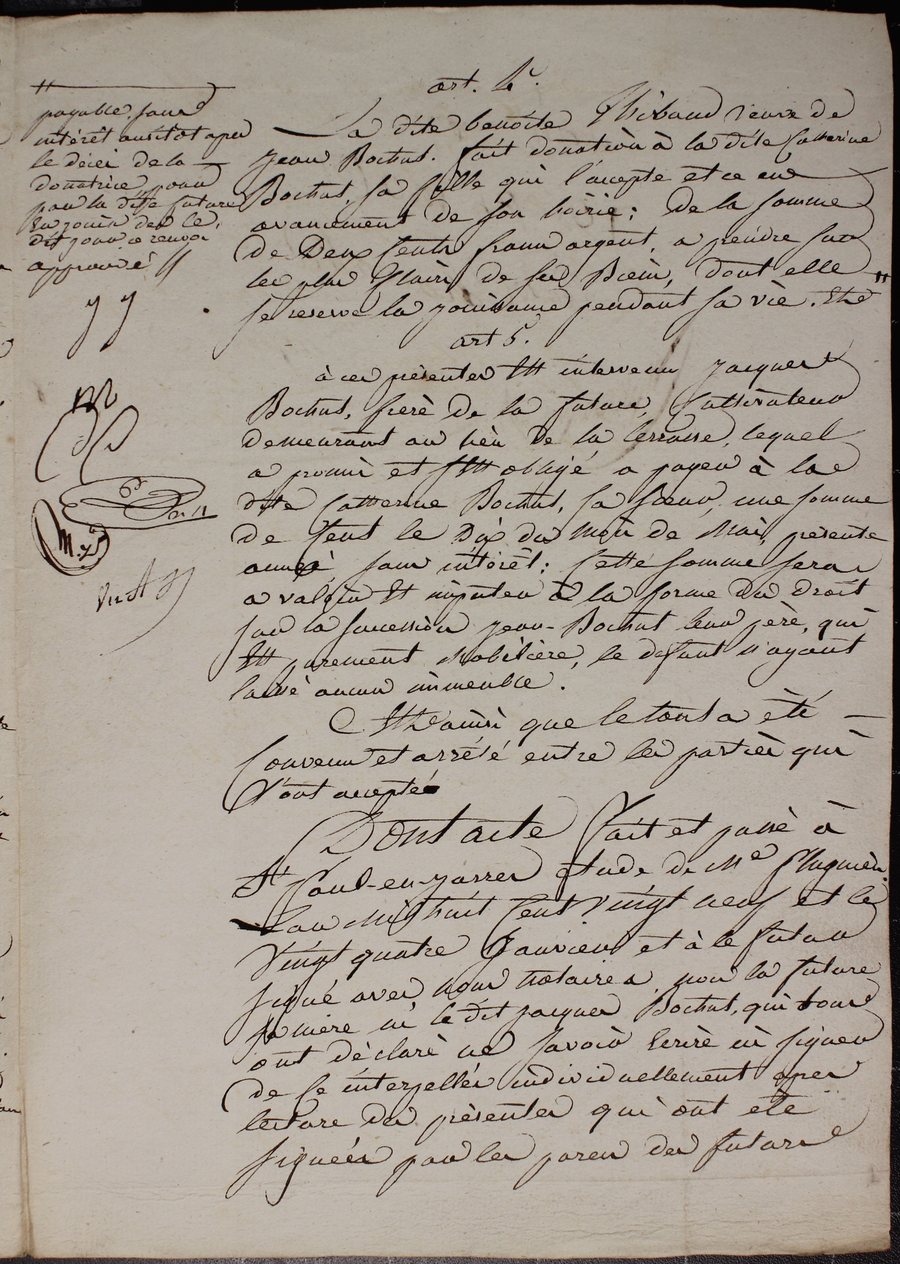 art. 4e.
La dite benoite Thibaud veuve de
jean Bochut. fait donation à la dite Catherine
Bochut, sa fille qui l'accepte et ce en
avancement de son hoirie; De la somme
de Deux Cents francs argent, a prendre sur
les plus Clairs de ses Biens, dont elle
se reserve la jouissance pendant sa vie. Elle "
art 5.
à ces présentes Est intervenu jacques
Bochut, frere de la future, Cultivateur
demeurant au lieu de la terrasse, lequel
a promis et s'est obligé a payer à la
dite Catherine Bochut, sa soeur, une somme
de Cent le Dix du mois de Mai, présente
année sans intérêt; Cette somme sera
a valoir Et imputer à la forme du droit
sur la succession jean-Bochut leur père, qui
Est purement Mobilière, le defunt n'ayant
laissé aucun immeuble.
C'Est ainsi que le tout a été
Convenu et arrêté entre les parties qui
l'ont accepté
Dont acte fait et passé à
St Paul-en-jarrez étude de Me
L'an Mil huit Cent vingt neuf et le
Vingt quatre Janvier et à le futur
signé avec nous notaires non la future
sa mère ni le dit jacques Bochut, qui tous
ont déclaré ne savoir Ecrire ni signer
de Ce interpellés individuellement apres
lecture des présentes qui ont été
signées par les parens des futurs
"
payable sans
intérêt aussitot apres
le décès de la
donatrice, pour
par la dite future
En jouir des le
dit jour, renvoi
approuvé //